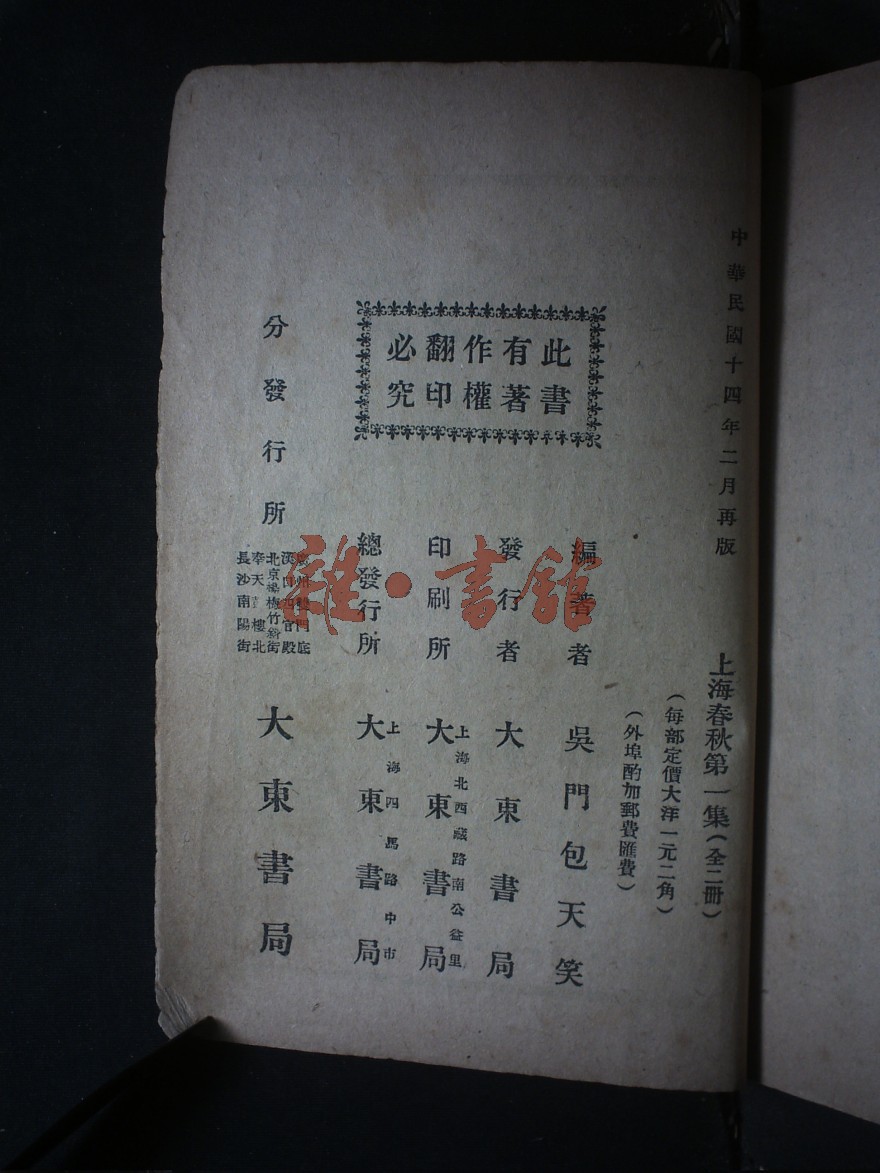 中華民國十四年二月再版
上海春秋第一集（全二冊）
（每部定價大洋一元二角）
（外埠酌加郵費匯費）
此書有著作權翻印必究
編著者 吳門包天笑
發行者 大東書局
印刷所 上海北西藏路南公益里 大東書局
總發行所 上海四馬路中市 大東書局
分發行所
廣州雙門底
漢口四官殿
北京楊梅竹斜街
奉天 樓北
長沙南陽街
大東書局
雜·書館